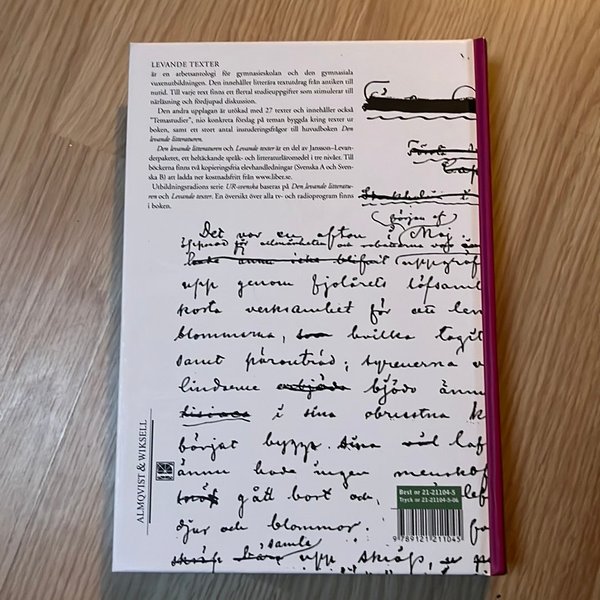 LEVANDE TEXTER
är en arbetsantologi för gymnasieskolan och den gymnasiala
vuxenutbildningen. Den innehåller litterära textutdrag från antiken till
nutid. Till varje text finns ett flertal studieuppgifter som stimulerar till
närläsning och fördjupad diskussion.
Den andra upplagan är utökad med 27 texter och innehåller också
"Temastudier", nio konkreta förslag på teman byggda kring texter ur
boken, samt ett stort antal instuderingsfrågor till huvudboken Den
levande litteraturen.
Den levande litteraturen och Levande texter är en del av Jansson–Levan-
derpaketet, ett heltäckande språk- och litteraturläromedel i tre nivåer. Till
böckerna finns två kopieringsfria elevhandledningar (Svenska A och Sven-
ska B) att ladda ner kostnadsfritt från www.liber.se.
Utbildningsradions serie UR-svenska baseras på Den levande litteratu-
ren och Levande texter. En översikt över alla tv- och radioprogram finns
i boken.
början af
Det var en afton i Maj
uppgräf
upp genom fjolårets löfsaml
korta verksamhet för att len
blommorna, hvilka tagit
samt päronträd; syrenerna
lindarne bjödo ännu
i sina obrustna k
börjat bygga. sina löf
ännu hade ingen mennisko
gått bort och
djur och blommor.
samla
upp skräp,
ALMQVIST & WIKSELL
Best nr 21-21104-5
Tryck nr 21-21104-5-06
9 789121 211045